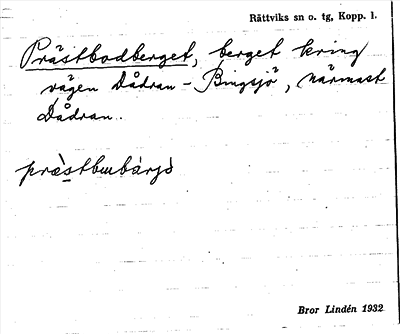 Rättviks sn o. tg, Kopp. l.
Prästbodberget, berget kring
vägen Dådran - Bingsjö, närmast
Dådran.
Bror Lindén 1932